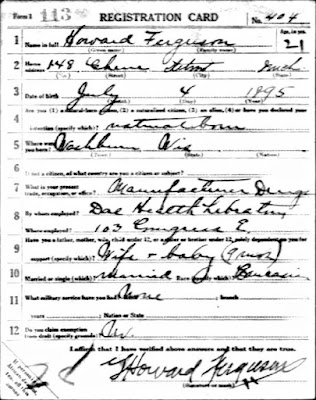 Form 1 113 REGISTRATION CARD No. 404
1 Name in full Howard Ferguson Age, in yrs. 21
(Given name) (Family name)
2 Home address 148 Chene Detroit Mich
(No.) (Street) (City) (State)
3 Date of birth July 4 1895
(Month) (Day) (Year)
4 Are you (1) a natural-born citizen, (2) a naturalized citizen, (3) an alien, (4) or have you declared your
intention (specify which)? natural born
5 Where were you born? Washburn Wis
(Town) (State) (Nation)
6 If not a citizen, of what country are you a citizen or subject?
7 What is your present trade, occupation, or office? Manufacturer Drugs
8 By whom employed? Health
Where employed? 103 Congress E.
9 Have you a father, mother, wife, child under 12, or a sister or brother under 12, solely dependent on you for
support (specify which)? Wife + baby (9 mos)
10 Married or single (which)? Married Race (specify which)? Caucasian
11 What military service have you had? None ; branch
years ; Nation or State
12 Do you claim exemption from draft (specify grounds)? No.
I affirm that I have verified above answers and that they are true.
Howard Ferguson
(Signature or mark)
If person is of African descent, tear off this corner